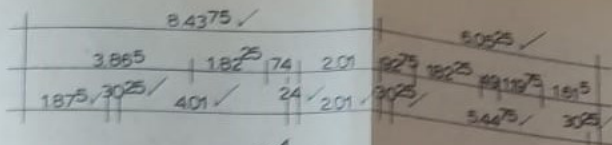 8.43⁷⁵ ✓ 5.05²⁵ ✓
3.86⁵ 1.82²⁵ 74 2.01 92⁷⁵ 1.82²⁵ 49 1.19⁷⁵ 1.81⁵
1.87⁵ ✓ 30²⁵ ✓ 4.01 ✓ 24 ✓ 2.01 ✓ 30²⁵ ✓ 5.44⁷⁵ ✓ 30²⁵ ✓